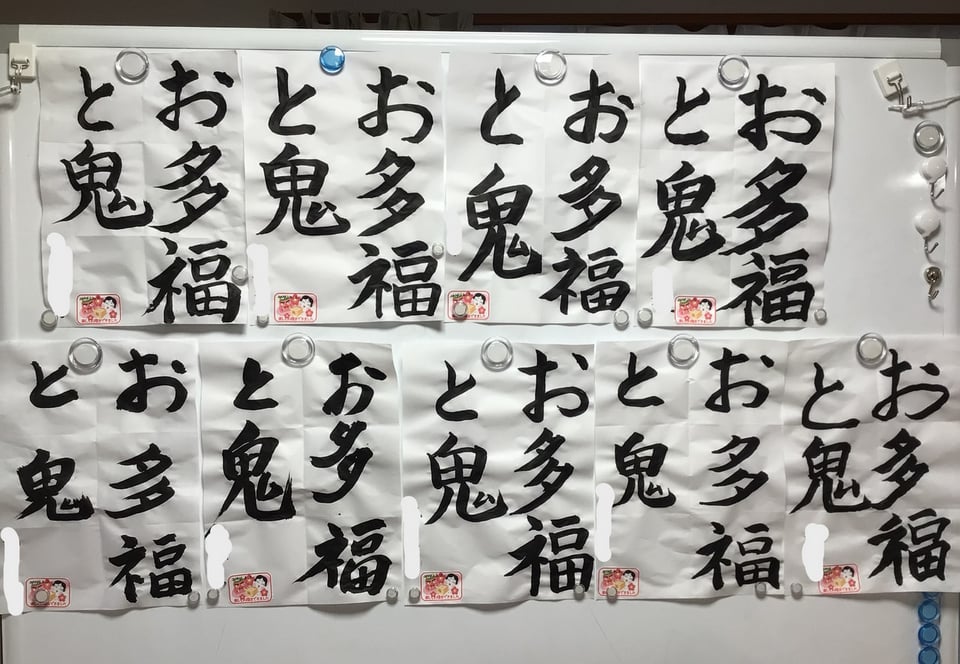 お多福
と鬼
お多福
と鬼
お多福
と鬼
お多福
と鬼
お多福
と鬼
お多福
と鬼
お多福
と鬼
お多福
と鬼
お多福
と鬼